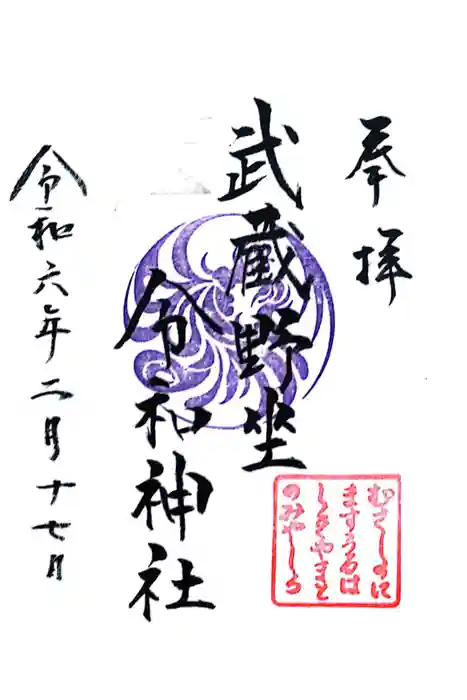 奉拝
武蔵野坐
令和神社
令和六年二月十七日
むさしのに
ますうるは
しきやまと
のみやしろ